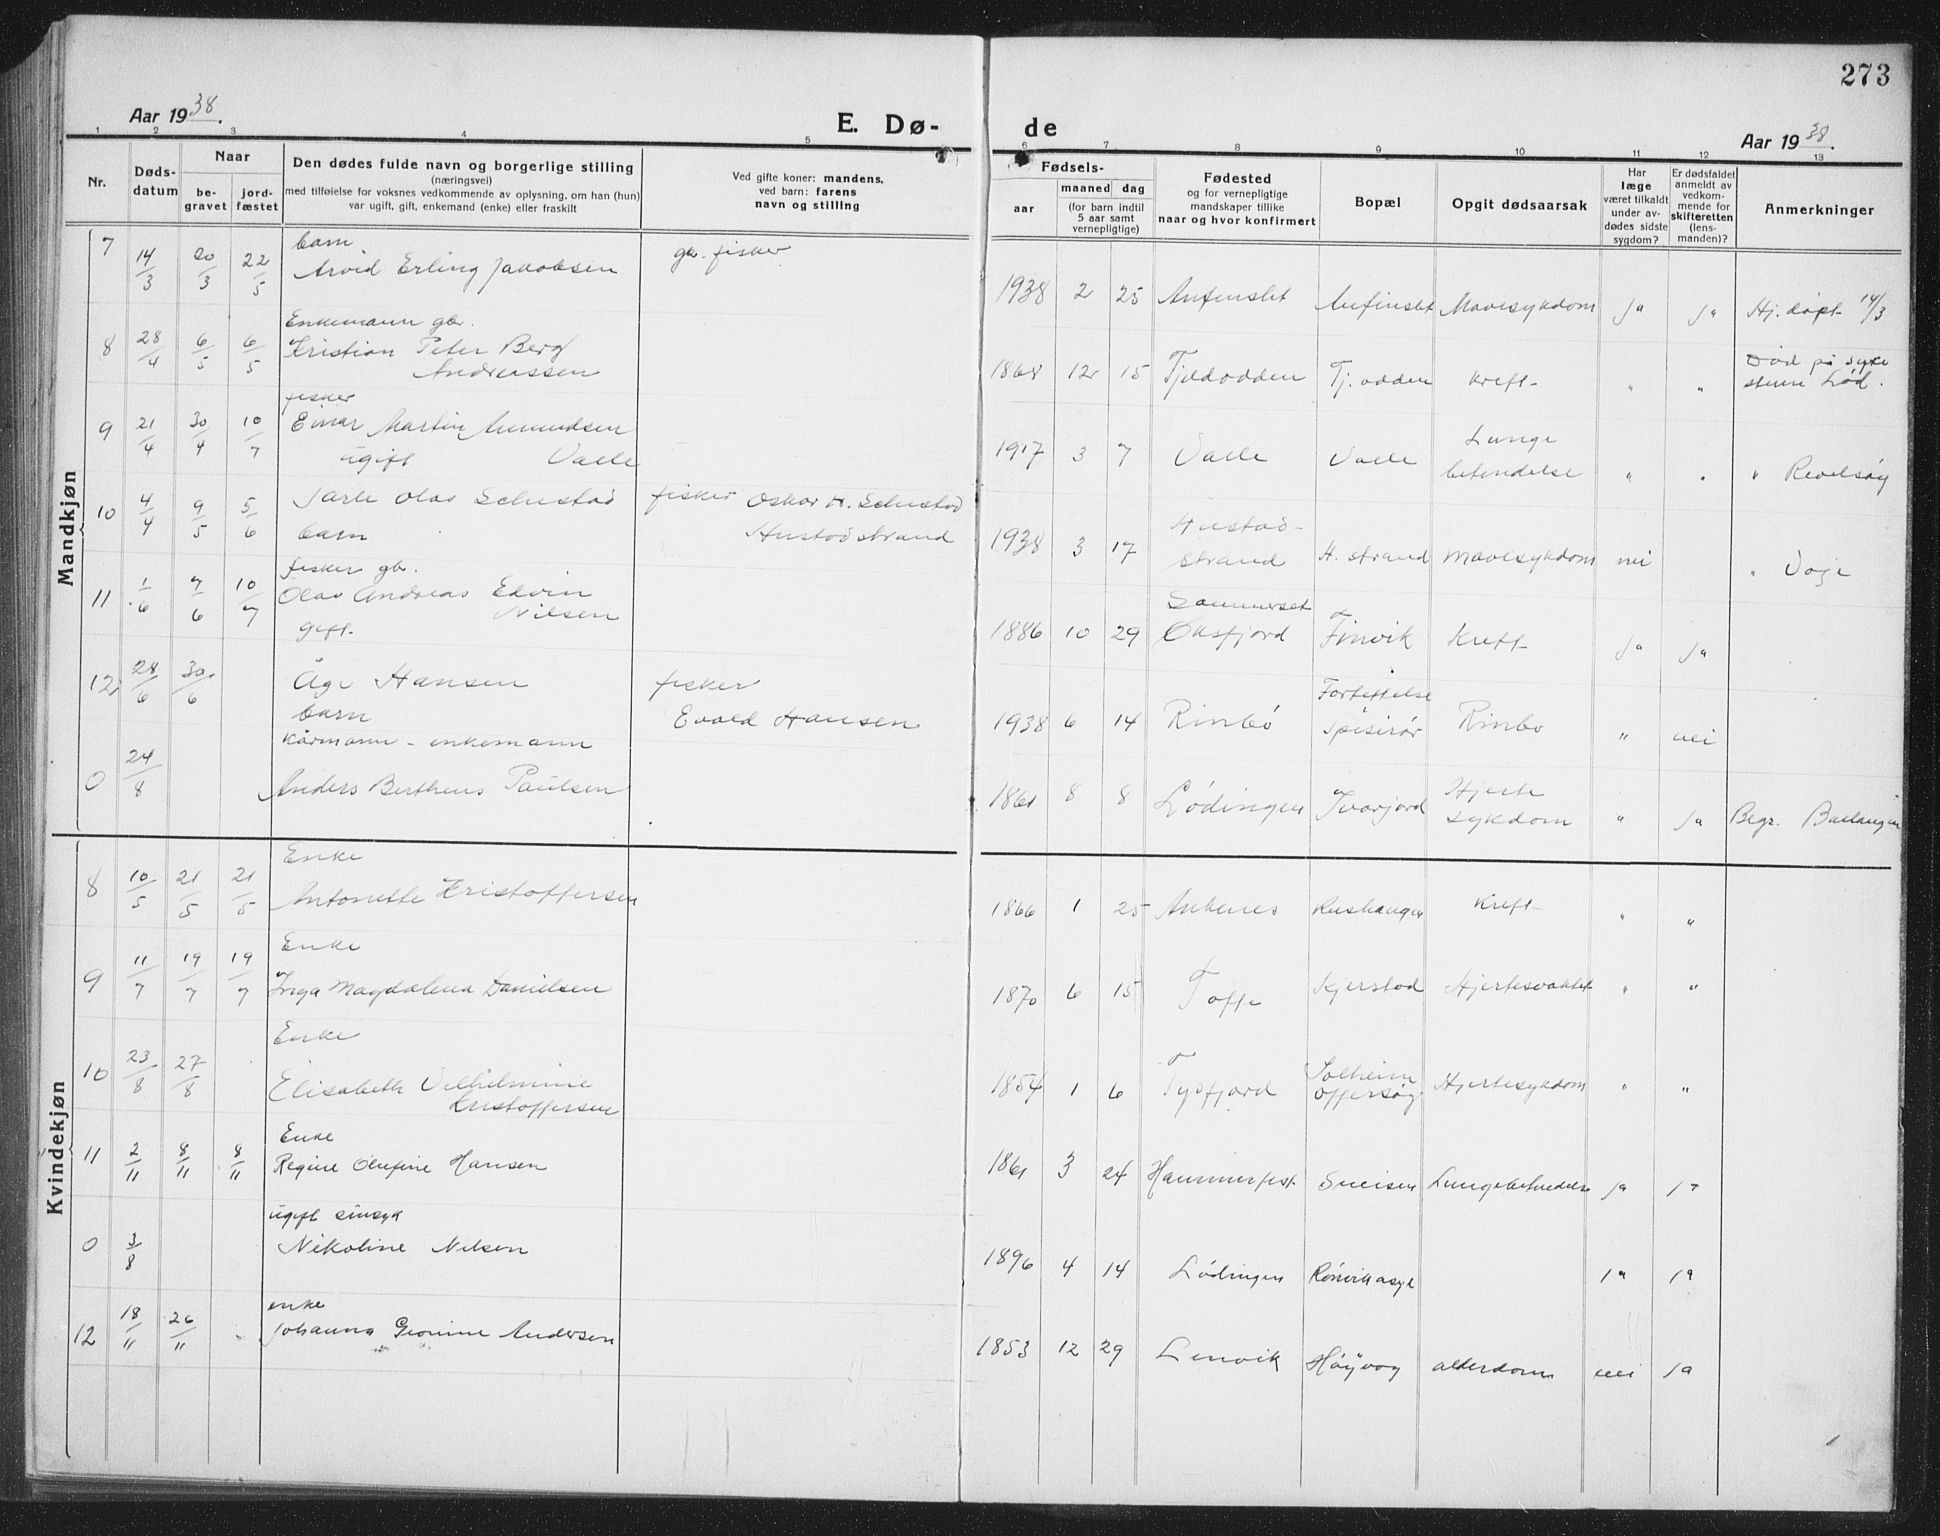 273
Aar 1938.
E. Dø-
de
Aar 1938.
1 2 3 4 5 6 7 8 9 10 11 12 13
Nr.
Døds-
datum
Naar
be-
gravet
jord-
fæstet
Den dødes fulde navn og borgerlige stilling
(næringsvei)
med tilføielse for voksnes vedkommende av oplysning, om han (hun)
var ugift, gift, enkemand (enke) eller fraskilt
Ved gifte koner: mandens,
ved barn: farens
navn og stilling
Fødsels-
aar
maaned dag
(for barn indtil
5 aar samt
vernepligtige)
Fødested
og for vernepligtige
mandskaper tillike
naar og hvor konfirmert
Bopæl
Opgit dødsaarsak
Har
læge
været tilkaldt
under av-
dødes sidste
sygdom?
Er dødsfaldet
anmeldt av
vedkom-
mende for
skifteretten
(lens-
manden)?
Anmerkninger
Mandkjøn
barn
7 14/3 20/3 22/5 Arvid Erling Jakobsen gb. fisker 1938 2 25 Anfinslet Anfinslet Mavesykdom Ja Ja Hj. døpt 14/3
Enkemann gbr.
8 28/4 6/5 6/5 Kristian Peter Berg
Andreassen 1868 12 15 Tjeldodden Tj. odden kreft " " Død på syke
stuen Lød.
fisker
9 21/4 30/4 10/7 Einar Martin Amundsen
ugift Valle 1917 3 7 Valle Valle Lunge
betendelse " " "
10 4/4 9/5 5/6 Jarle Olav Selnstad
barn fisker Oskar H. Selnstad
Hustadstrand 1938 3 17 Hustad-
strand H. strand Mavesykdom nei " Voje
fisker gb.
11 1/6 7/6 10/7 Olav Andreas Edvin
Nilsen
gift 1886 10 29 Sommerset
Øksfjord Finvik Kreft Ja Ja
12 28/6 30/6 Åge Hansen
barn fisker
Evald Hansen 1938 6 14 Rinbø Fortettelse
spiserør Rinbø " nei
kårmann - enkemann
0 24/8 Anders Bertheus Paulsen 1861 8 8 Lødingen Ivarjord Hjerte
sykdom " Ja Begr. Ballangen
Kvindekjøn
Enke
8 10/5 21/5 21/5 Antonette Kristoffersen 1866 1 25 Ankenes Rushaugen Kreft " "
Enke
9 11/7 19/7 19/7 Inga Magdalena Danielsen 1870 6 15 Toffe Kjerstad Hjerteswakhet " "
Enke
10 23/8 27/8 Elisabeth Vilhelmine
Kristoffersen 1854 1 6 Tysfjord Solheim
Offersøy Hjertesykdom " "
Enke
11 2/11 8/11 8/11 Regine Olufine Hansen 1861 3 24 Hammerfest Sneisen Lungebetendelse ja ja
ugift sinsyk
0 3/8 Nikoline Nilsen 1896 4 14 Lødingen Rønvik asyl ja ja
enke
12 18/11 26/11 Johanna Andersen 1853 12 29 Lenvik Høyvåg alderdom nei ja